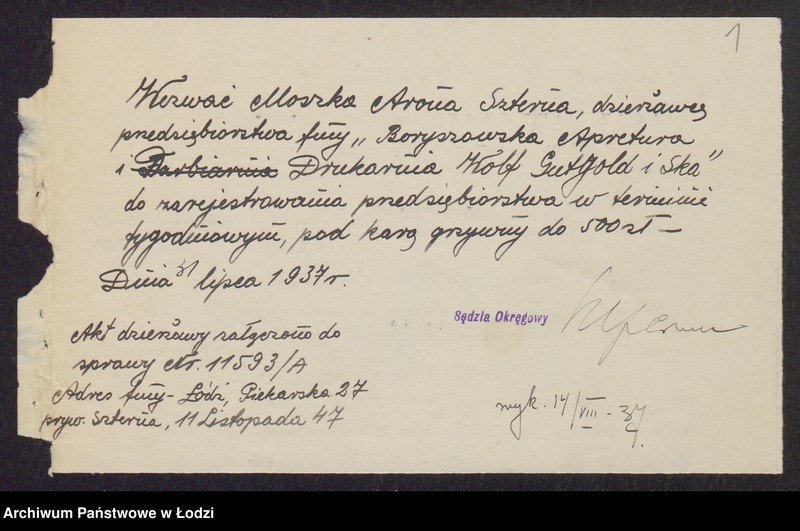 1
Wezwać Moszka Arona Szterna, dzierżawcę
przedsiębiorstwa fmy „Boryszowska Apretura
i Farbiarnia Drukarnia Wolf Gutgold i Ska”
do zarejestrowania przedsiębiorstwa w terminie
tygodniowym, pod karą grzywny do 500 zł —
Dnia 31 lipca 1937 r.
Sędzia Okręgowy
Akt dzierżawy załączono do
sprawy Nr. 11593/A
Adres fmy - Łódź, Piekarska 27
pryw. Szterna, 11 Listopada 47
wyk. 14/VIII - 37
Archiwum Państwowe w Łodzi